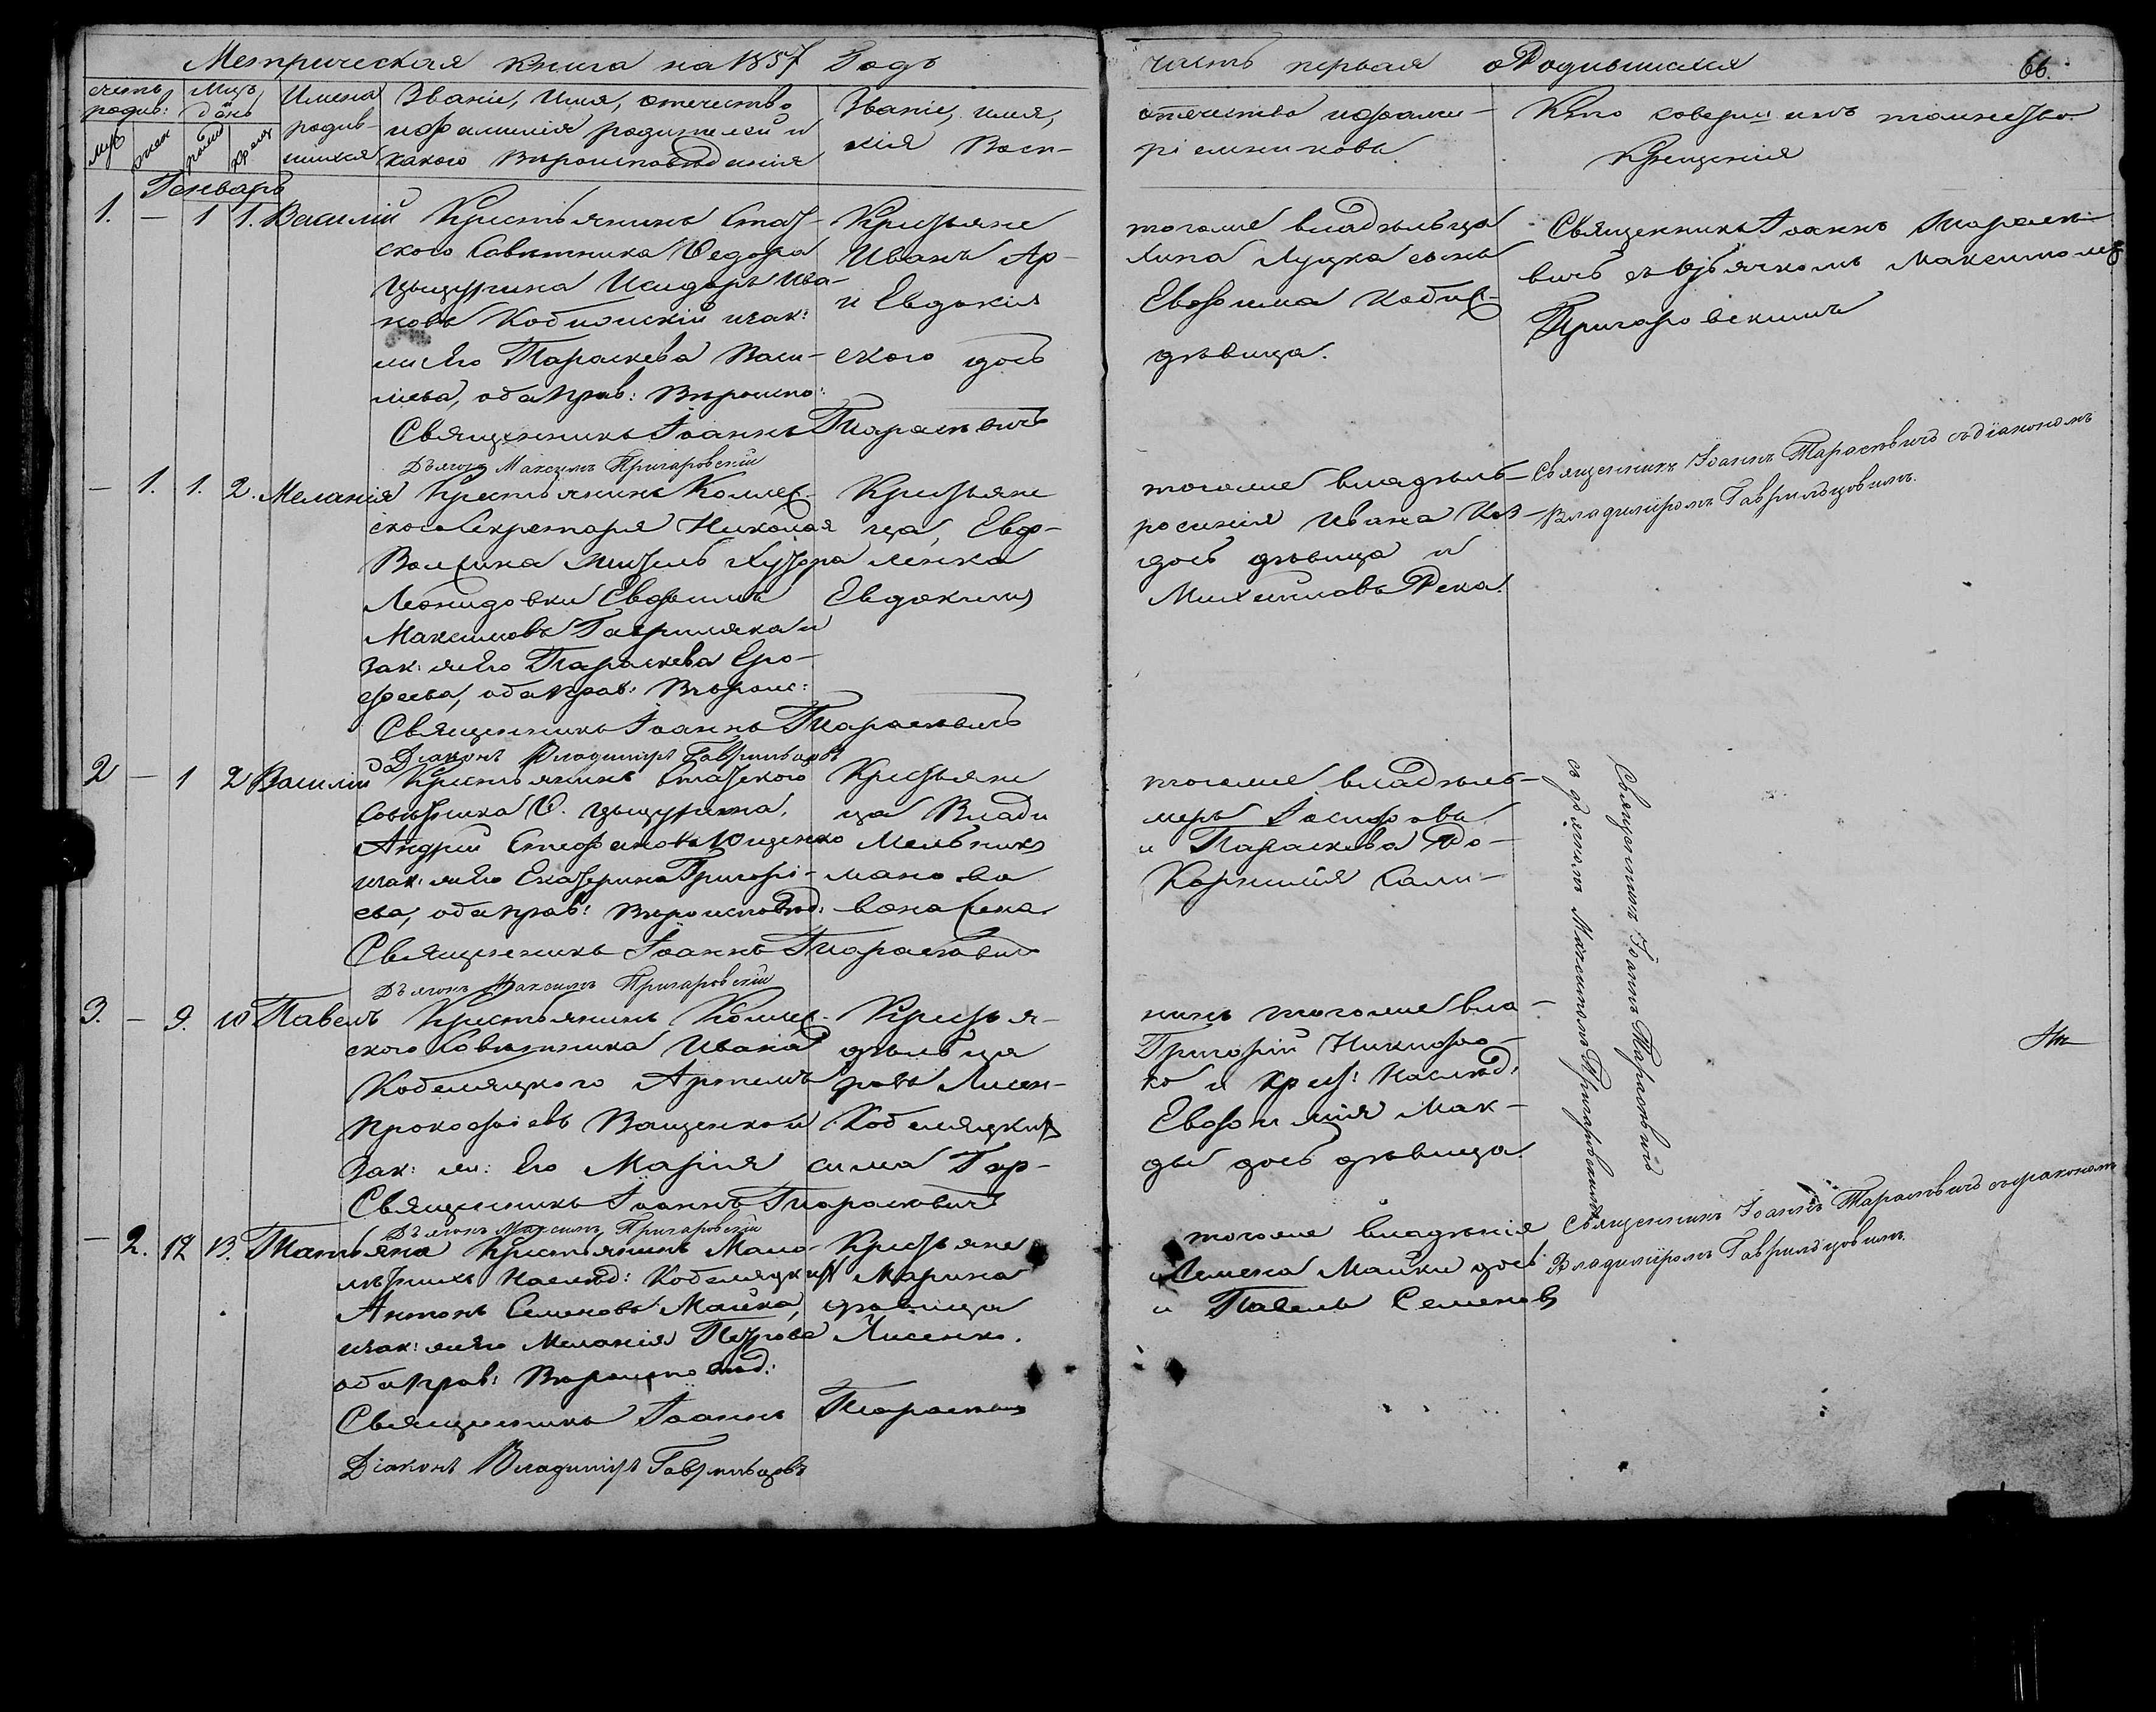 Метрическая книга на 1857 Годъ
часть первая о Родившихся
66.
счетъ родив:
Муж
женс
Мцъ и день
рожд
крещ
Имена родив-
шихся
Званіе, Имя, отечество
и фамилія родителей и
какого Вѣроисповѣданія
Званіе, имя,
лія Восп-
отечество и фами-
ріемниковъ.
Кто совершалъ таинство
Крещенія
Генварь
1. — 1 1. Василій
Крестьянинъ Стат-
ского Совѣтника Ѳедора
Цыцурина Исидоръ Ива-
новъ и зак:
ж: Его Параскева Васи-
лева, оба прав: Вѣроиспо:
Священникъ Іоаннъ Тарасевичъ
Дьячокъ Максимъ Пригаровскій
Крестьяне
Иванъ Ар-
и Евдокія
ского дочь
тогоже владѣльца
хипа Луцка сынъ
Евфима
дѣвица.
Священникъ Іоаннъ Тарасе-
вичъ съ дьячкомъ Максимомъ
Пригаровскимъ
— 1. 1. 2. Меланія
Крестьянинъ Коллеж-
ского Секретаря Николая
житель Хутора
Леонидовки Евфимъ
Максимовъ Гаврилака и
зак: ж: Его Параскева Еро-
феева, оба прав: Вѣроис:
Священникъ Іоаннъ Тарасевичъ
Діаконъ Владиміръ Гаврильцовъ
Крестьяне
ца, Евф-
ленка
Евдокимъ
тогоже владѣль-
росинія Ивана
дочь дѣвица и
Михайловъ Река.
Священникъ Іоаннъ Тарасевичъ съ діакономъ
Владиміромъ Гаврильцовымъ.
2 — 1 2 Василій
Крестьянинъ Статского
Совѣтника Ѳ. Цыцурина,
Андрей Стефановъ Ющенко
и зак: ж: Его Екатерина Григорі-
ева, оба прав: Вѣроисповѣд:
Священникъ Іоаннъ Тарасевичъ
Дьячокъ Максимъ Пригаровскій
Крестьяне
ца Влади
Мельникъ
манова
вона
тогоже владѣль-
меръ Іосифовъ
и Параскева Ро-
Корнилія Сали-
Священникъ Іоаннъ Тарасевичъ
съ дьячкомъ Максимомъ Пригаровскимъ
3. — 9. 10 Павелъ
Крестьянинъ Коллеж-
ского Совѣтника Ивана
Кобеляцкого Артемъ
Прокофіевъ Ващенко и
Зак: ж: Его Марія
Священникъ Іоаннъ Тарасевичъ
Дьячокъ Максимъ Пригаровскій
Крестья-
дѣльца
ровъ Лисен-
Кобеляцкихъ
сима Гор-
нинъ тогоже вла-
Григорій Никифо-
ко и крест: Наслѣд:
Евфимія Мак-
ды дочь дѣвица.
— 2. 12 13. Татьяна
Крестьянинъ Мало-
лѣтнихъ Наслѣд: Кобеляцкихъ
Антонъ Семеновъ Майка,
и зак: ж: Его Меланія Петрова
оба прав: Вѣроисповѣд:
Священникъ Іоаннъ Тарасевичъ
Діаконъ Владиміръ Гаврильцовъ
Крестьяне
Марина
дѣвица
Лисенко.
тогоже владѣнія
Семена Майки дочь
и Павелъ Семеновъ
Священникъ Іоаннъ Тарасевичъ съ діакономъ
Владиміромъ Гаврильцовымъ.